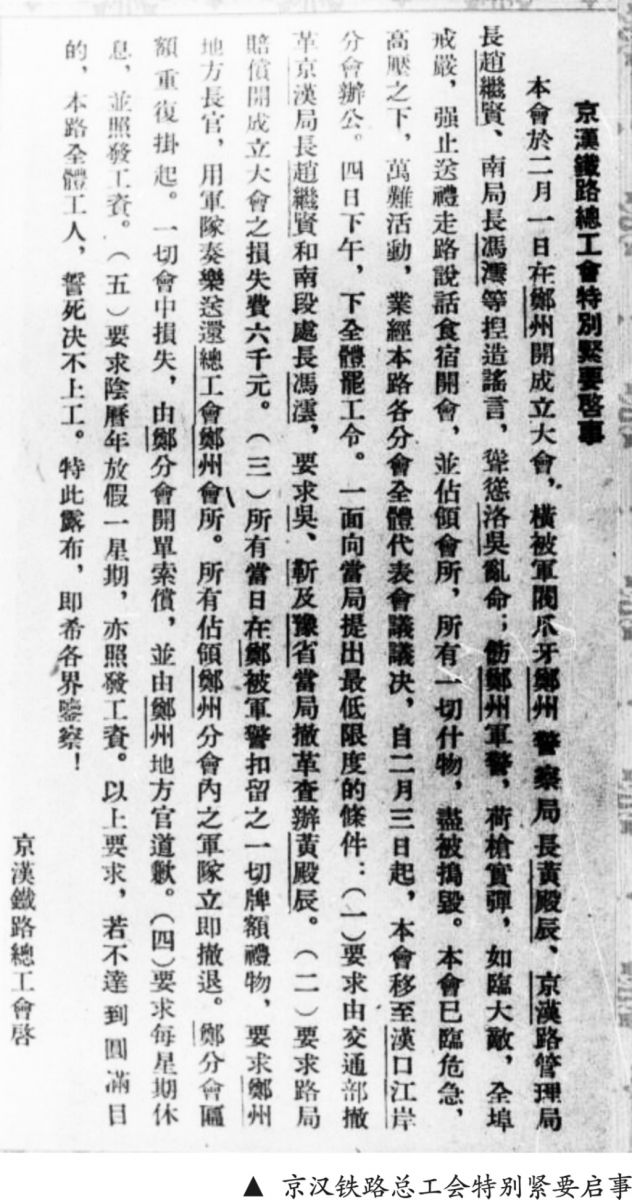 京漢鐵路總工會特別緊要啓事
本會於二月一日在鄭州開成立大會，橫被軍閥爪牙鄭州警察局長黃殿辰、京漢路管理局
長趙繼賢、南局長馮澐等揑造謠言，聳慫洛吳亂命；飭鄭州軍警，荷槍實彈，如臨大敵，全埠
戒嚴，强止送禮走路說話食宿開會，並佔領會所，所有一切什物，盡被搗毀。本會已臨危急，
高壓之下，萬難活動，業經本路各分會全體代表會議議决，自二月三日起，本會移至漢口江岸
分會辦公。四日下午，下全體罷工令。一面向當局提出最低限度的條件：（一）要求由交通部撤
革京漢局長趙繼賢和南段處長馮澐，要求吳、靳及豫省當局撤革查辦黃殿辰。（二）要求路局
賠償開成立大會之損失費六千元。（三）所有當日在鄭被軍警扣留之一切牌額禮物，要求鄭州
地方長官，用軍隊奏樂送還總工會鄭州會所。所有佔領鄭州分會內之軍隊立即撤退。鄭分會匾
額重復掛起。一切會中損失，由鄭分會開單索償，並由鄭州地方官道歉。（四）要求每星期休
息，並照發工資。（五）要求陰曆年放假一星期，亦照發工資。以上要求，若不達到圓滿目
的，本路全體工人，誓死决不上工。特此露布，即希各界鑒察！
京漢鐵路總工會啓
▲ 京汉铁路总工会特别紧要启事